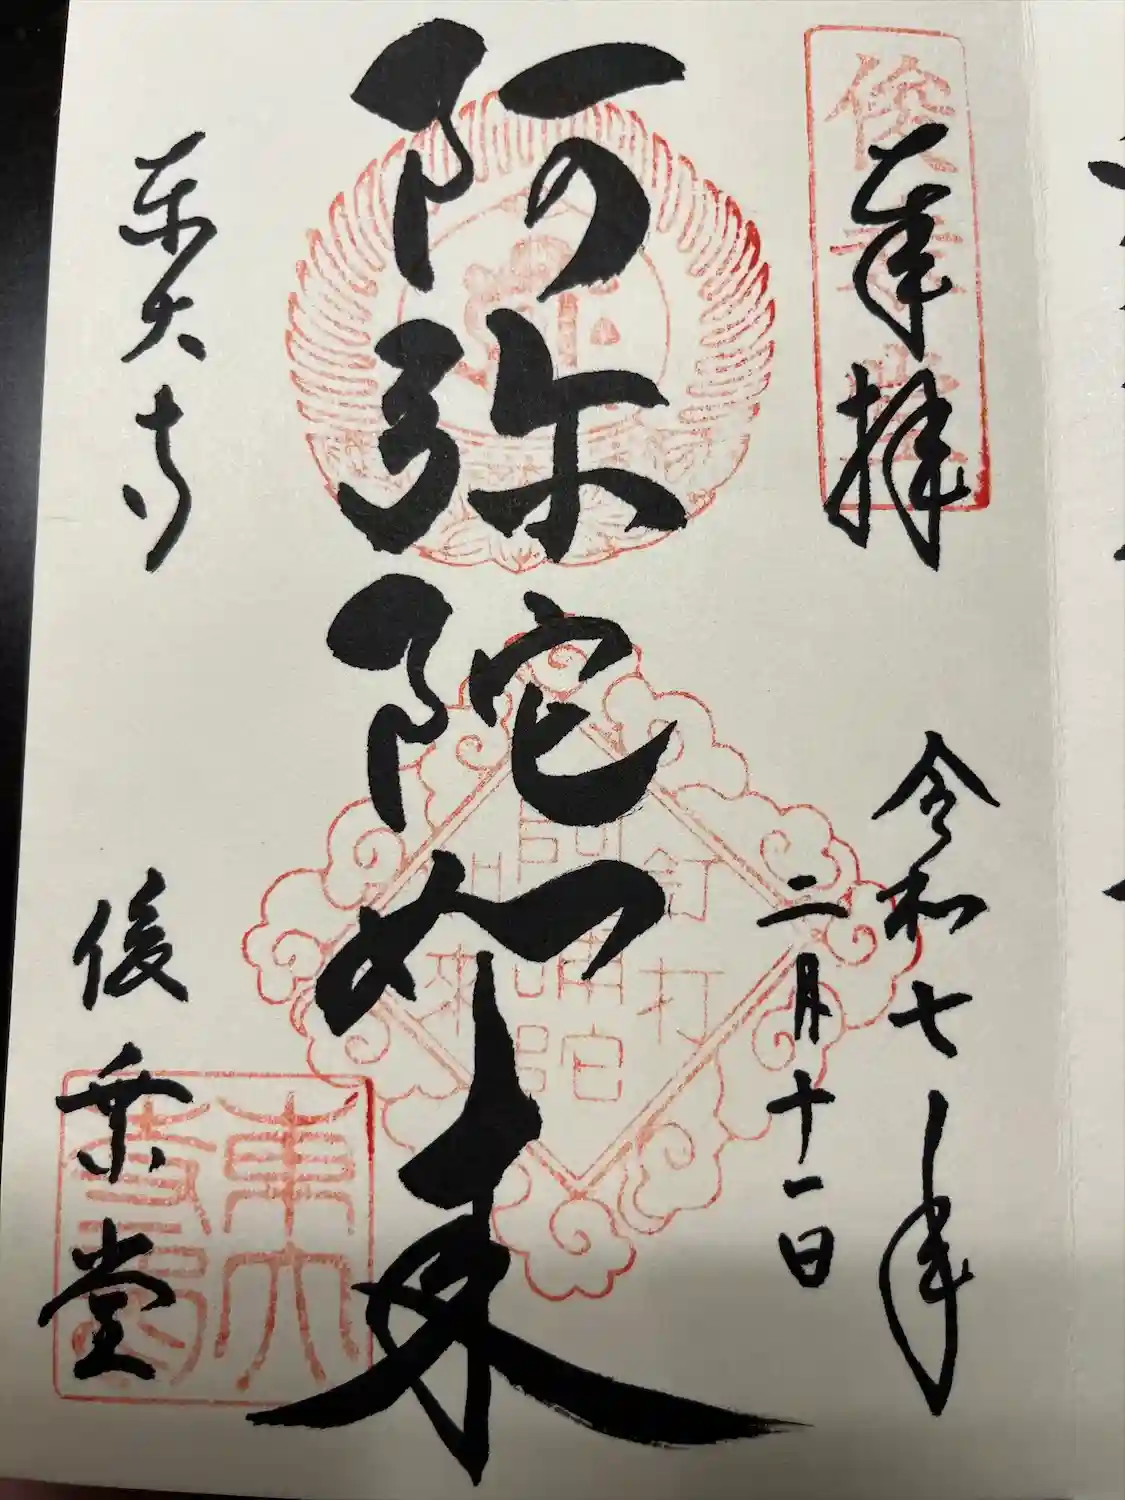 奉拝
令和七年
二月十一日
阿弥陀如来
東大寺
俊乗堂
俊乗堂
東大寺